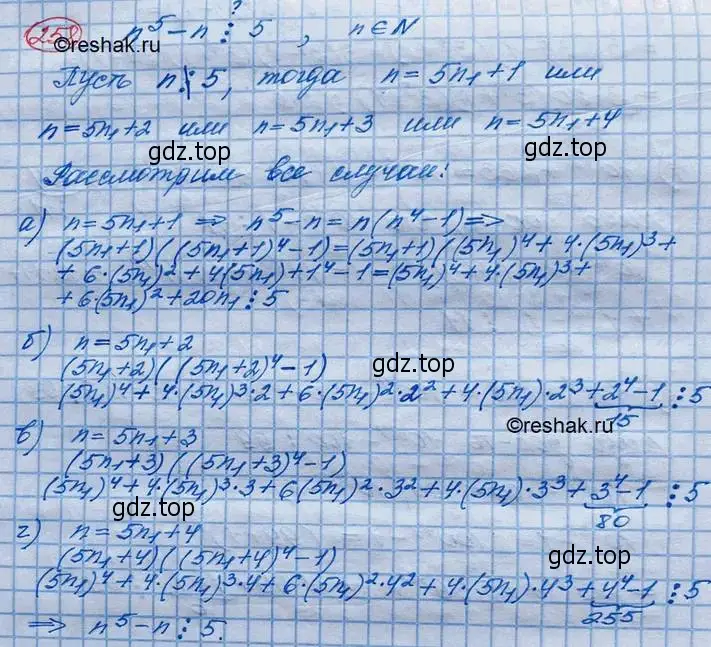 ?
258 n⁵ − n ⋮ 5 , n ∈ N
©reshak.ru
Пусть n ⋮̸ 5, тогда n = 5n₁ + 1 или
n = 5n₁ + 2 или n = 5n₁ + 3 или n = 5n₁ + 4
gdz.top gdz.top
Рассмотрим все случаи:
а) n = 5n₁ + 1 ⇒ n⁵ − n = n(n⁴ − 1) ⇒
(5n₁+1)((5n₁+1)⁴−1) = (5n₁+1)((5n₁)⁴ + 4·(5n₁)³ +
+ 6·(5n₁)² + 4(5n₁) + 1⁴ − 1 = (5n₁)⁴ + 4·(5n₁)³ +
+ 6·(5n₁)² + 20n₁ ⋮ 5
б) n = 5n₁ + 2
(5n₁+2)((5n₁+2)⁴−1)
gdz.top
(5n₁)⁴ + 4·(5n₁)³·2 + 6·(5n₁)²·2² + 4·(5n₁)·2³ + 2⁴−1 ⋮ 5
15
©reshak.ru
в) n = 5n₁ + 3
(5n₁+3)((5n₁+3)⁴−1)
(5n₁)⁴ + 4·(5n₁)³·3 + 6(5n₁)²·3² + 4·(5n₁)·3³ + 3⁴−1 ⋮ 5
80
gdz.top
г) n = 5n₁ + 4
(5n₁+4)((5n₁+4)⁴−1)
gdz.top
(5n₁)⁴ + 4·(5n₁)³·4 + 6·(5n₁)²·4² + 4·(5n₁)·4³ + 4⁴−1 ⋮ 5
255
⇒ n⁵ − n ⋮ 5.